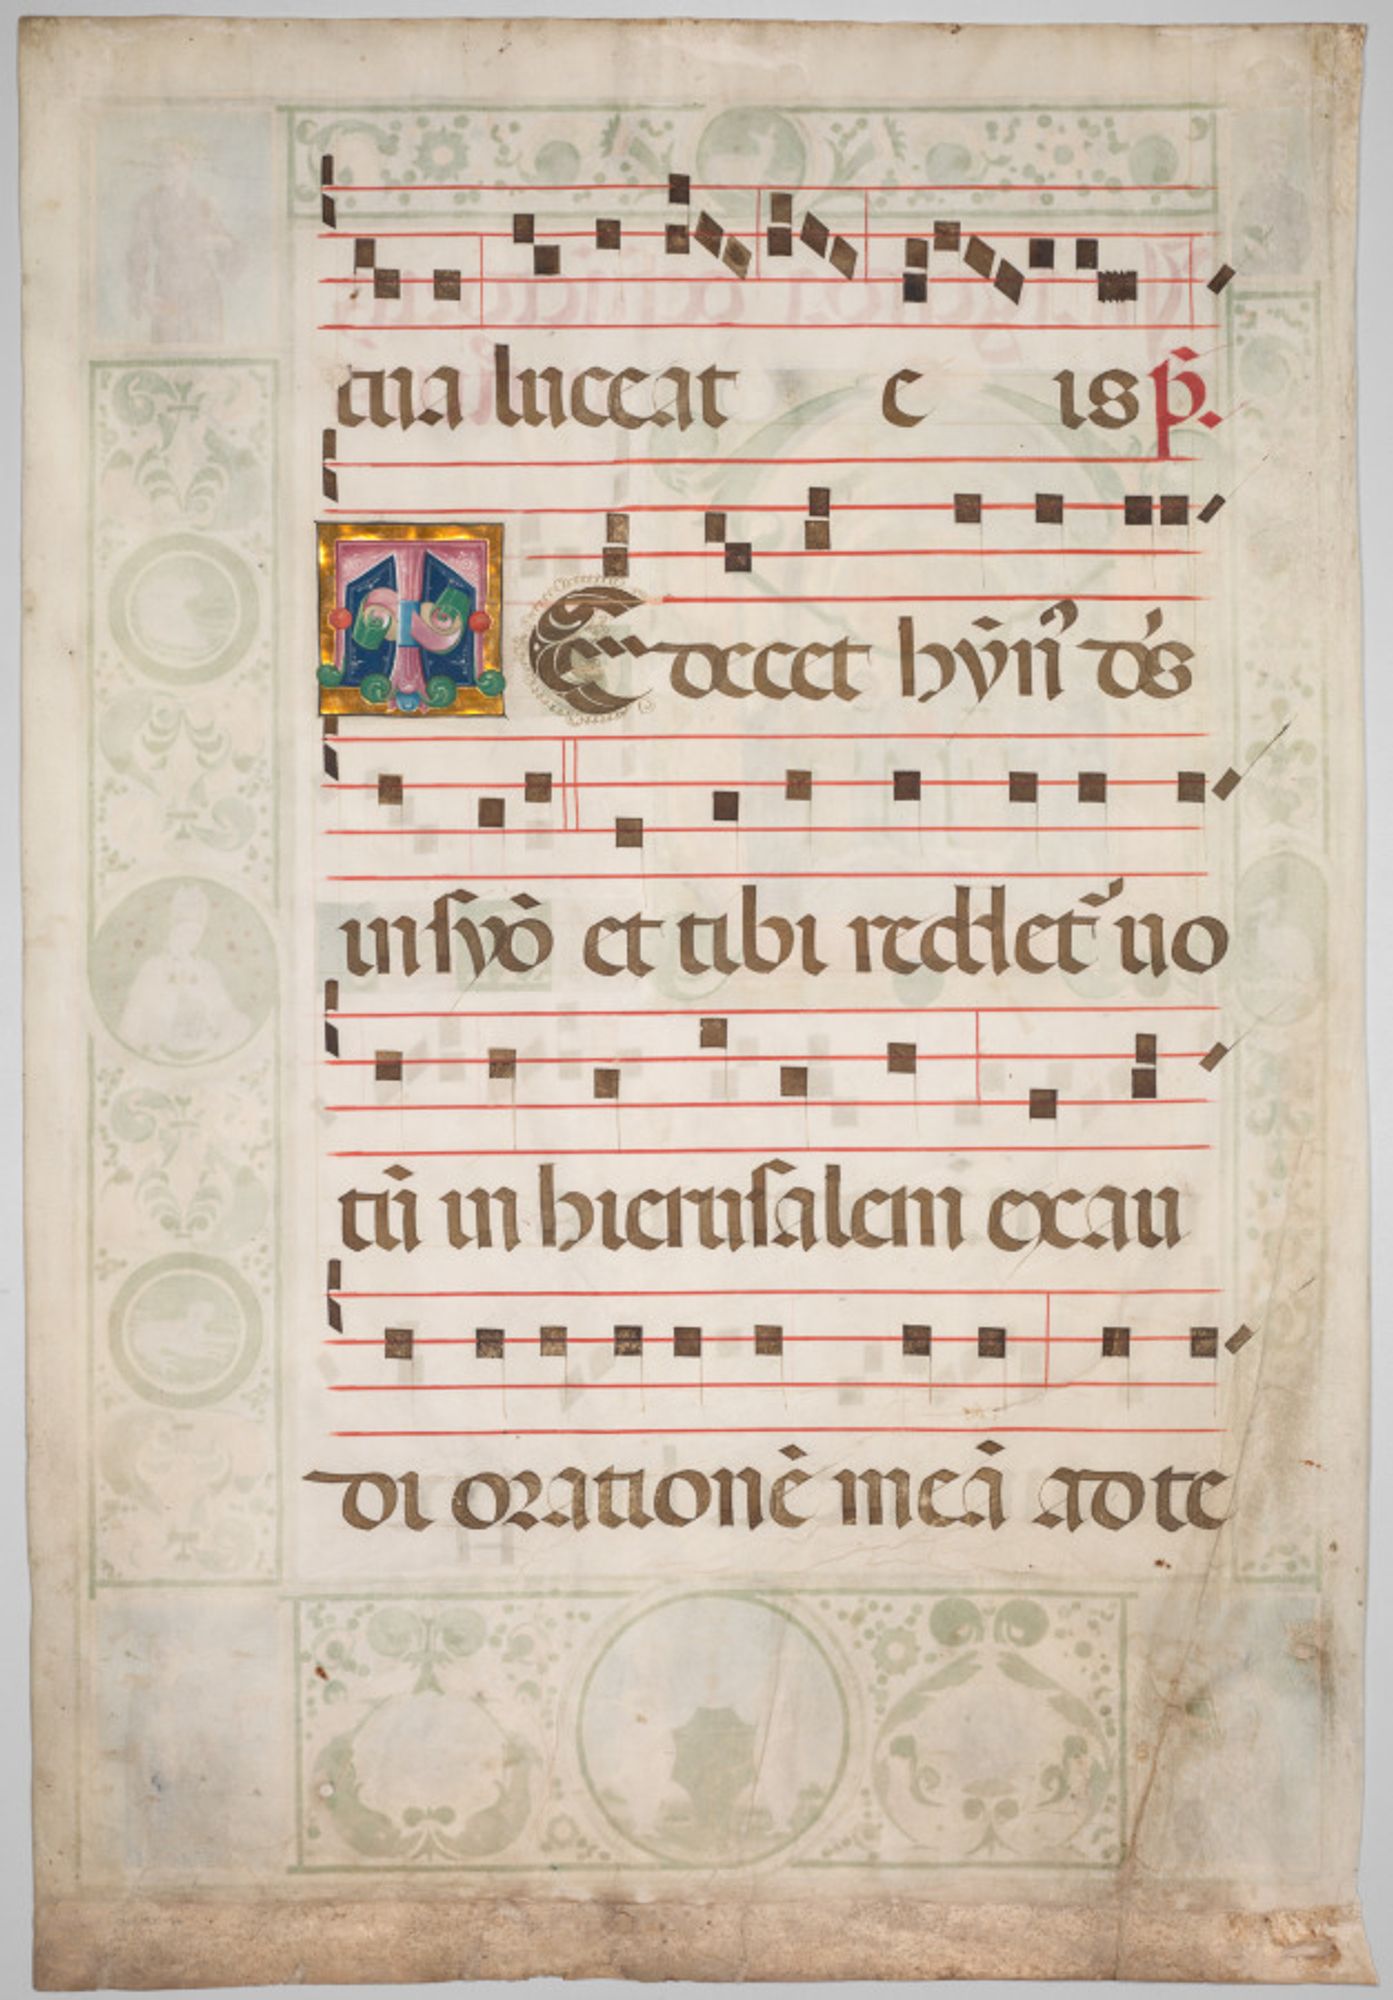 tua luceat e is p̄.
TE decet hym̄n̄ʼ d̓s
in syō et tibi reddetᷣ uo
tū in hierusalem exau
di orationē meā ad te